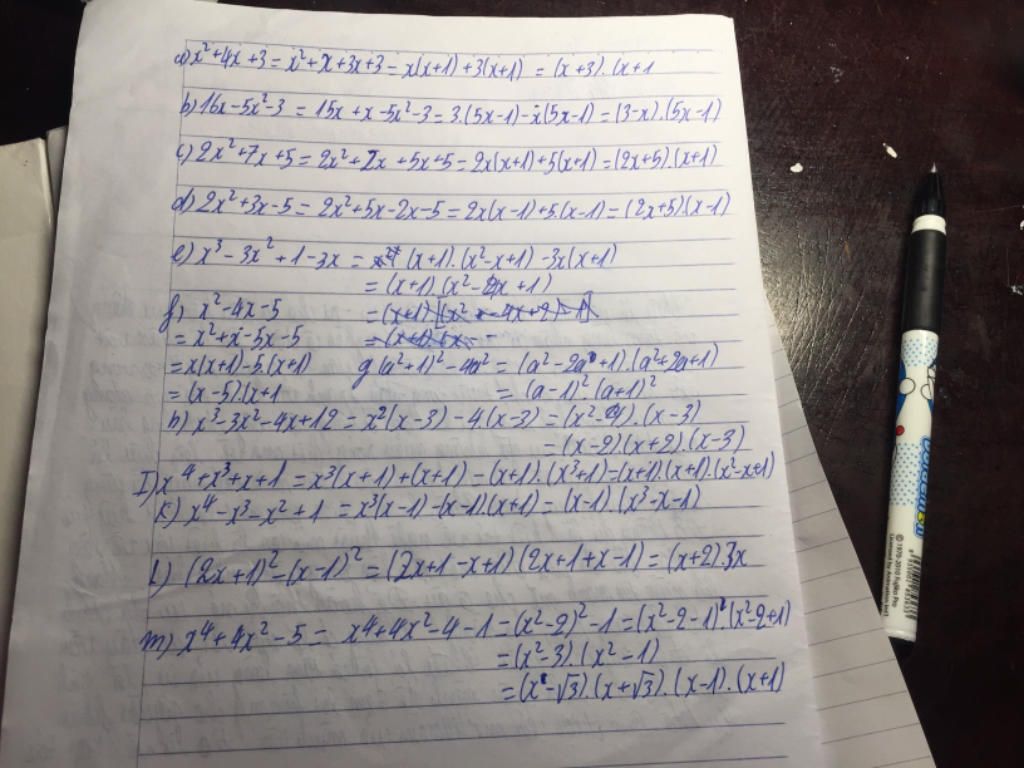 a) x² + 4x + 3 = x² + x + 3x + 3 = x(x+1) + 3(x+1) = (x+3).(x+1
b) 16x - 5x² - 3 = 15x + x - 5x² - 3 = 3.(5x-1) - x(5x-1) = (3-x).(5x-1)
c) 2x² + 7x + 5 = 2x² + 2x + 5x + 5 = 2x(x+1) + 5(x+1) = (2x+5).(x+1)
d) 2x² + 3x - 5 = 2x² + 5x - 2x - 5 = 2x(x-1) + 5.(x-1) = (2x+5)(x-1)
e) x³ - 3x² + 1 - 3x = (x+1).(x²-x+1) - 3x(x+1)
= (x+1).(x² - 4x + 1)
f) x² - 4x - 5
= x² + x - 5x - 5
= x(x+1) - 5.(x+1)
= (x-5).(x+1
g (a²+1)² - 4a² = (a² - 2a + 1).(a² + 2a + 1)
= (a-1)².(a+1)²
h) x³ - 3x² - 4x + 12 = x²(x-3) - 4.(x-3) = (x²-4).(x-3)
= (x-2)(x+2).(x-3)
I) x⁴ + x³ + x + 1 = x³(x+1) + (x+1) = (x+1).(x³+1) = (x+1).(x+1).(x²-x+1)
K) x⁴ - x³ - x² + 1 = x³(x-1) - (x-1).(x+1) = (x-1).(x³-x-1)
l) (2x+1)² - (x-1)² = (2x+1-x+1)(2x+1+x-1) = (x+2).3x
m) x⁴ + 4x² - 5 = x⁴ + 4x² - 4 - 1 = (x²-2)² - 1 = (x²-2-1).(x²-2+1)
= (x²-3).(x²-1)
= (x-√3).(x+√3).(x-1).(x+1)